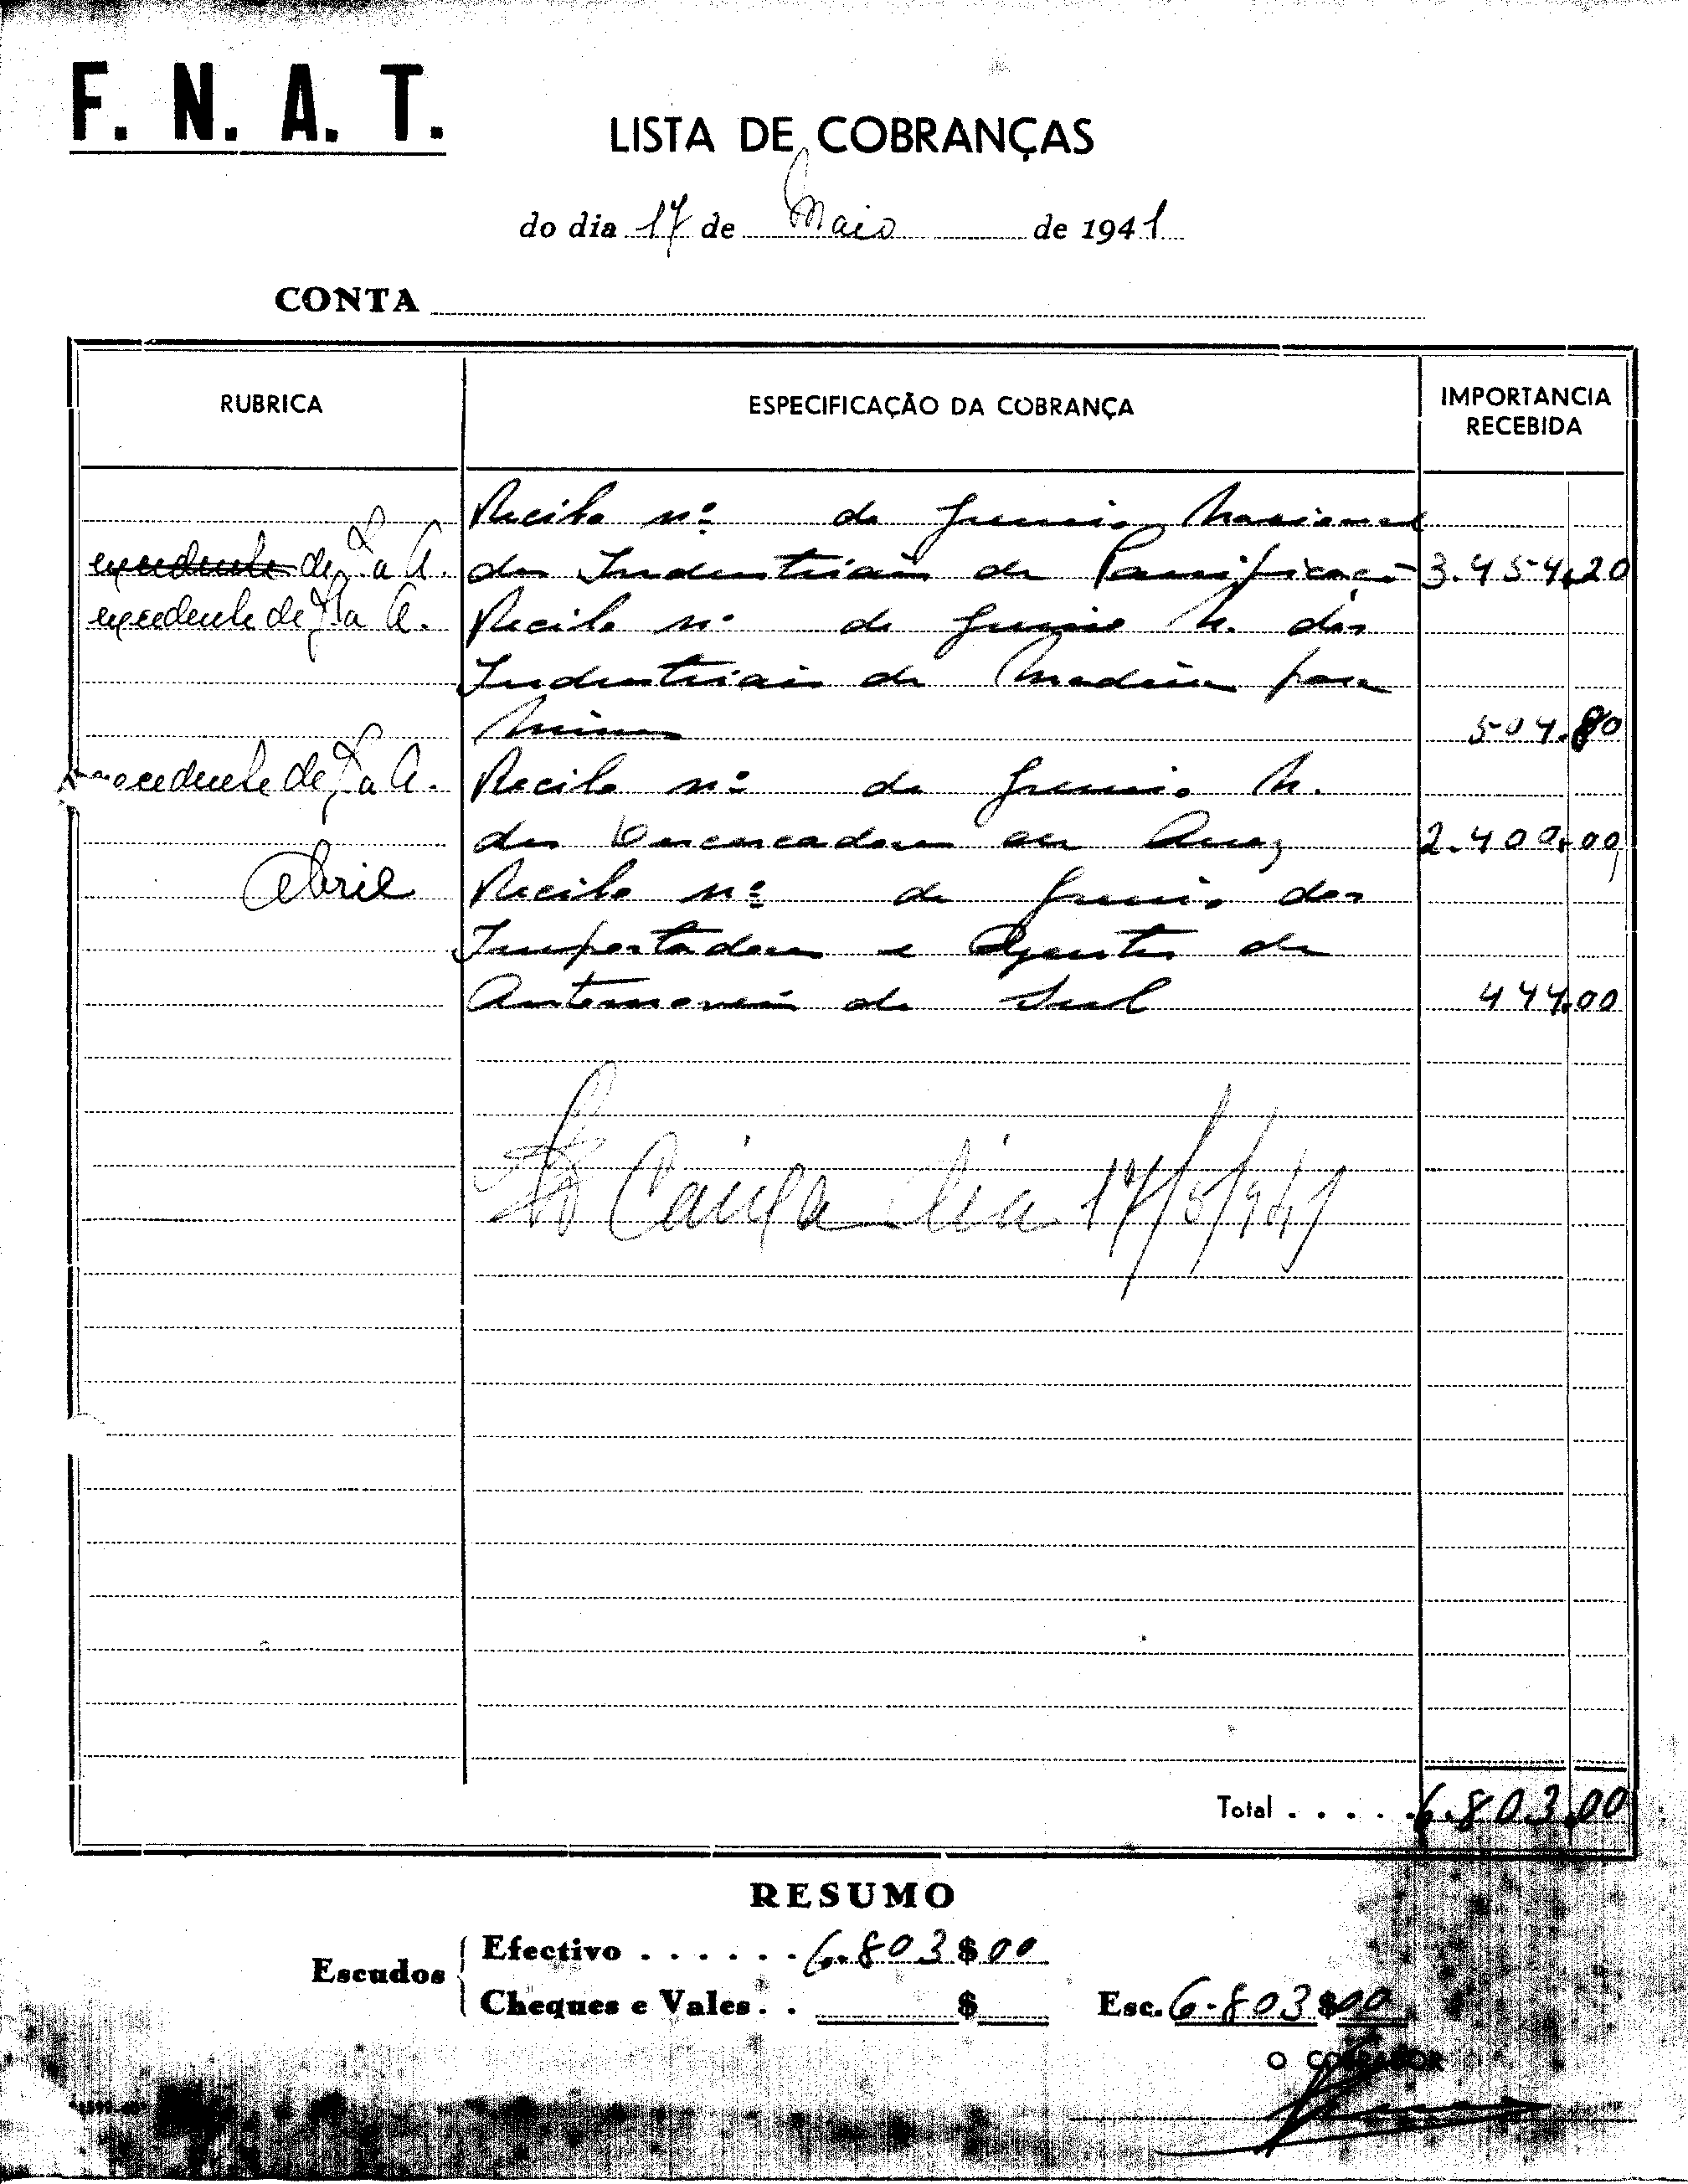 F. N. A. T.
LISTA DE COBRANÇAS
do dia 17 de Maio de 1941
CONTA
RUBRICA
ESPECIFICAÇÃO DA COBRANÇA
IMPORTANCIA
RECEBIDA
Recibo nº do Gremio Nacional
excedente de a A. dos Industriais de Panificação 3.454,20
excedente de a A. Recibo nº do Gremio N. dos
Industriais de Madeira para
Minas 504.80
excedente de a A. Recibo nº do Gremio N.
dos Descascadores de Arroz 2.400,00
Abril Recibo nº do Gremio dos
Importadores e Agentes de
Automoveis do Sul 444,00
Caixa dia 17/5/941
Total . . . . . 6.803,00
RESUMO
Escudos
Efectivo . . . . . . 6.803$00
Cheques e Vales. . $
Esc. 6.803$00
O COBRADOR